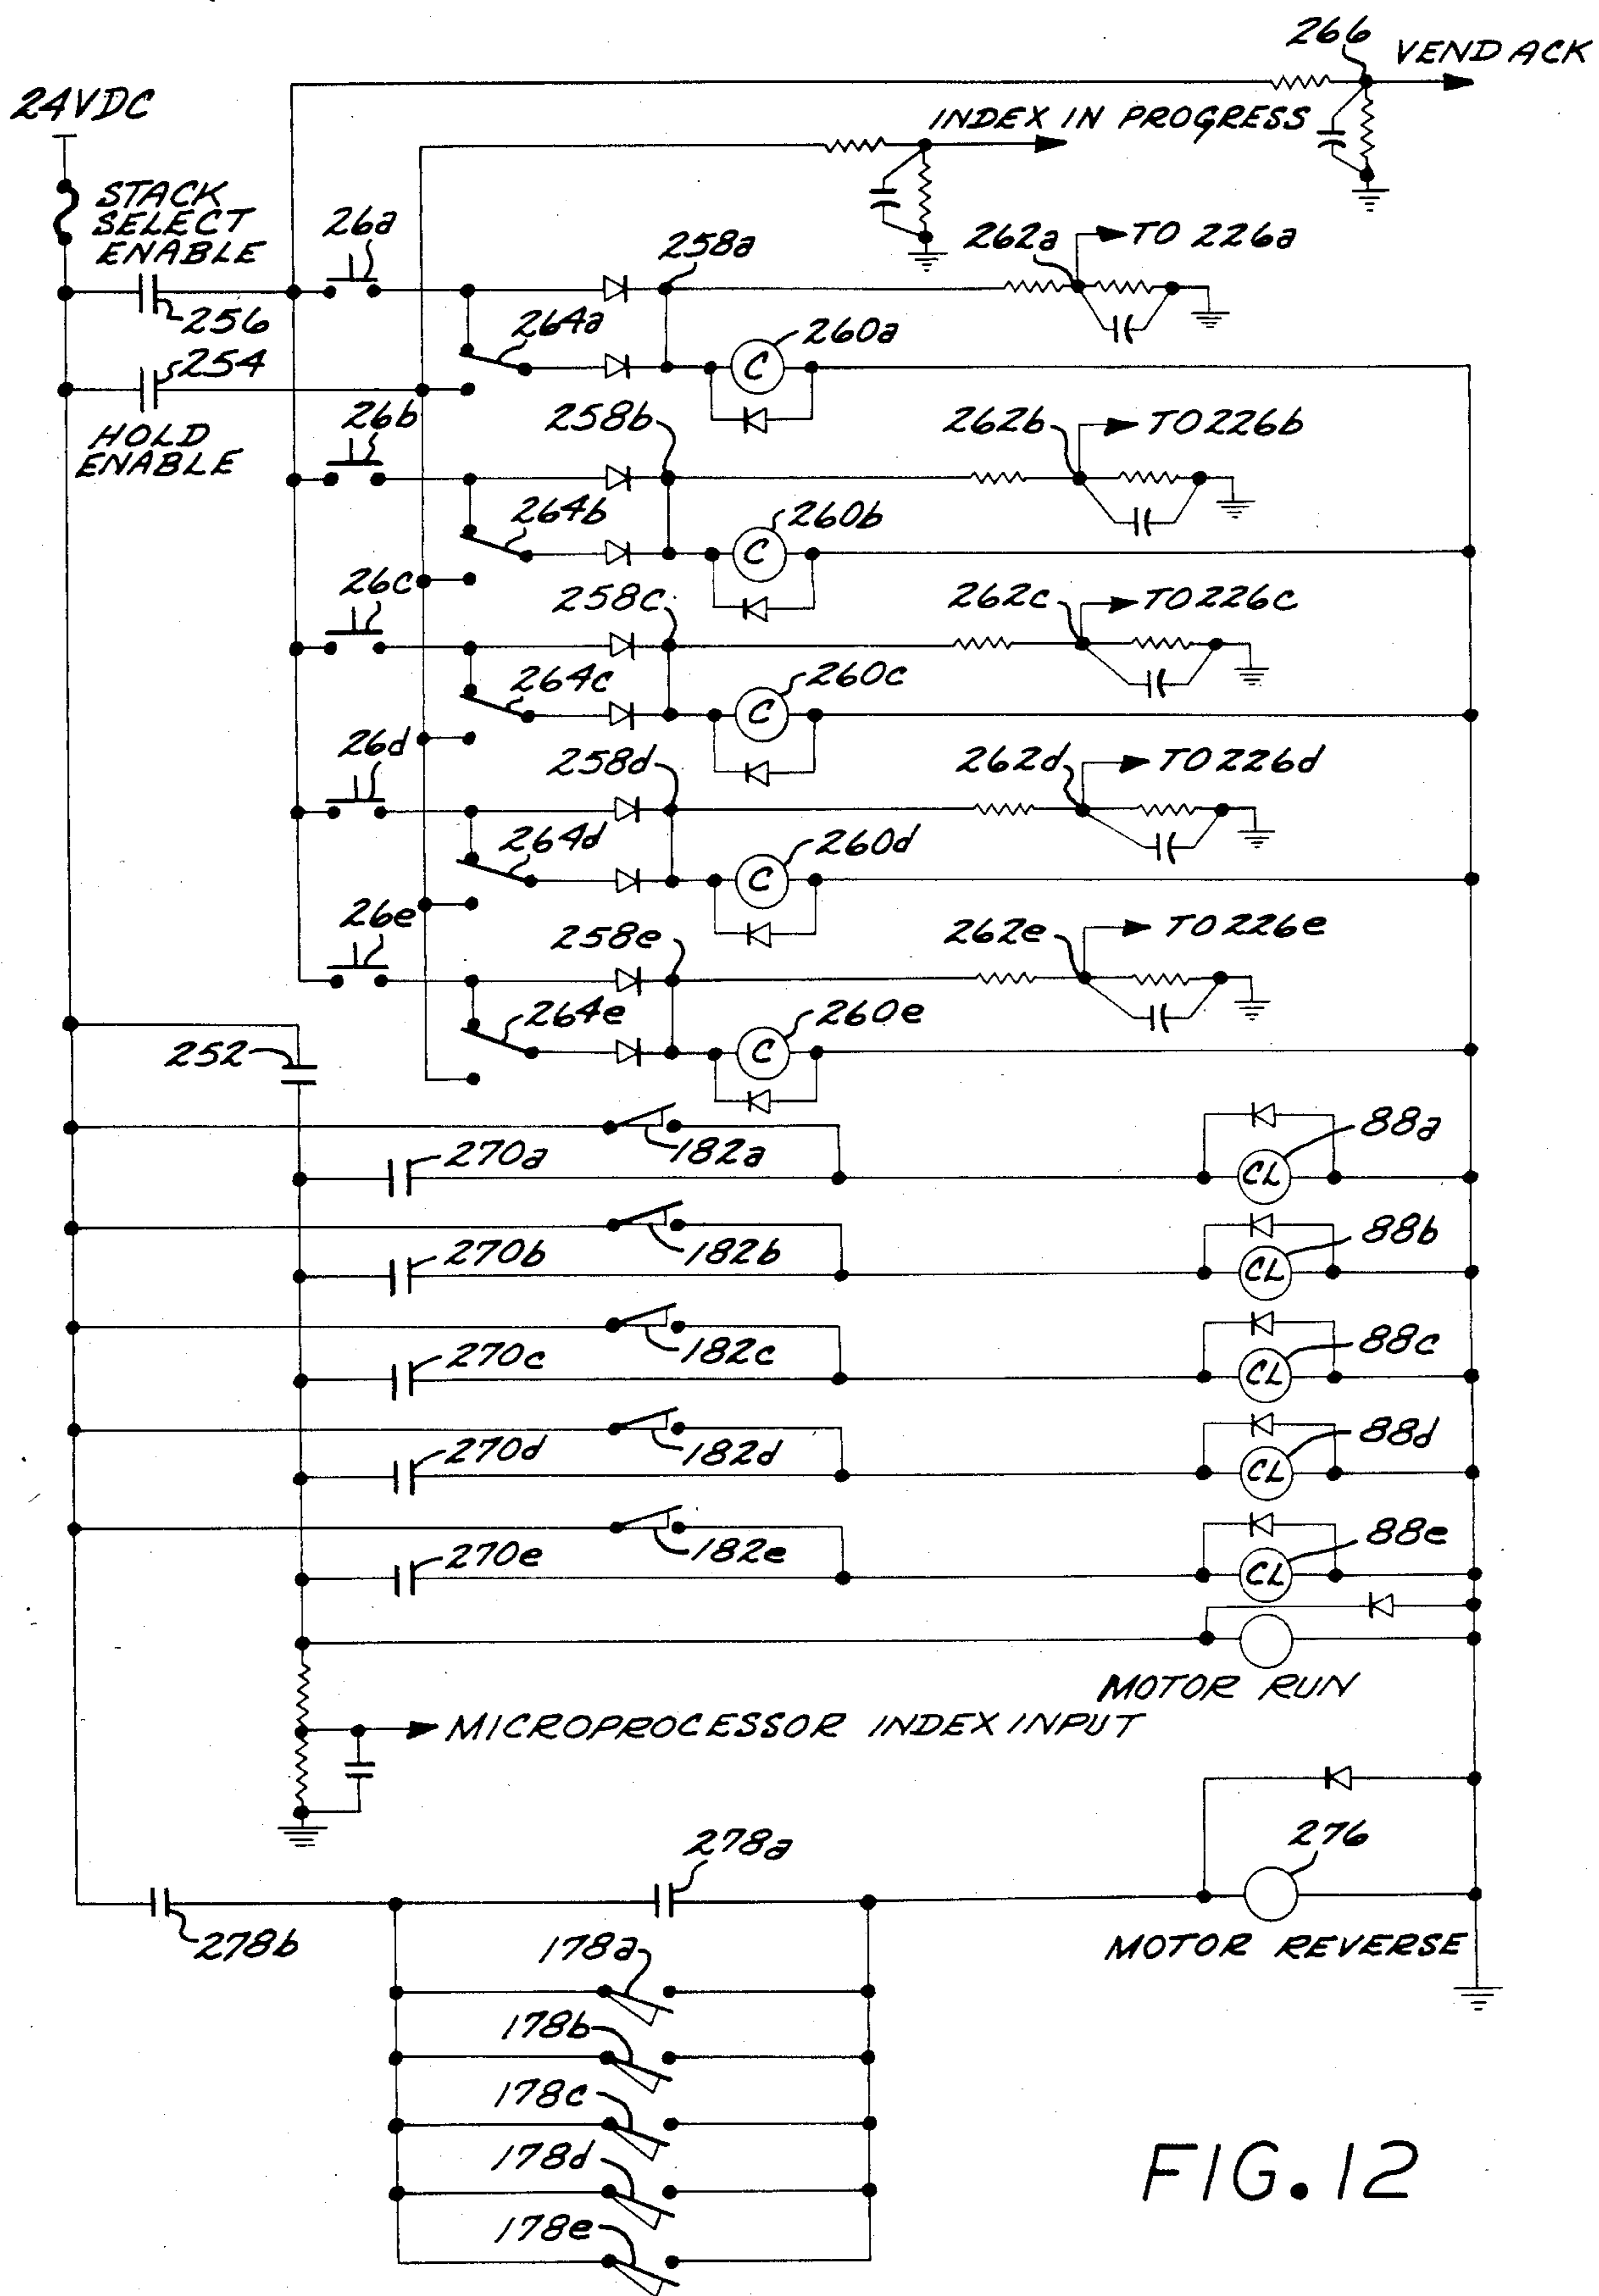 266
VEND ACK
24VDC
INDEX IN PROGRESS
STACK
SELECT
ENABLE
26a
258a
262a
TO 226a
256
264a
260a
254
HOLD
ENABLE
26b
258b
262b
TO 226b
264b
260b
26c
258c
262c
TO 226c
264c
260c
C
26d
258d
262d
TO 226d
264d
260d
C
26e
258e
262e
TO 226e
264e
260e
C
C
C
252
182a
88a
270a
CL
182b
88b
270b
CL
182c
88c
270c
CL
182d
88d
270d
CL
182e
88e
270e
CL
MOTOR RUN
MICROPROCESSOR INDEX INPUT
278a
276
278b
MOTOR REVERSE
178a
178b
178c
178d
178e
FIG. 12